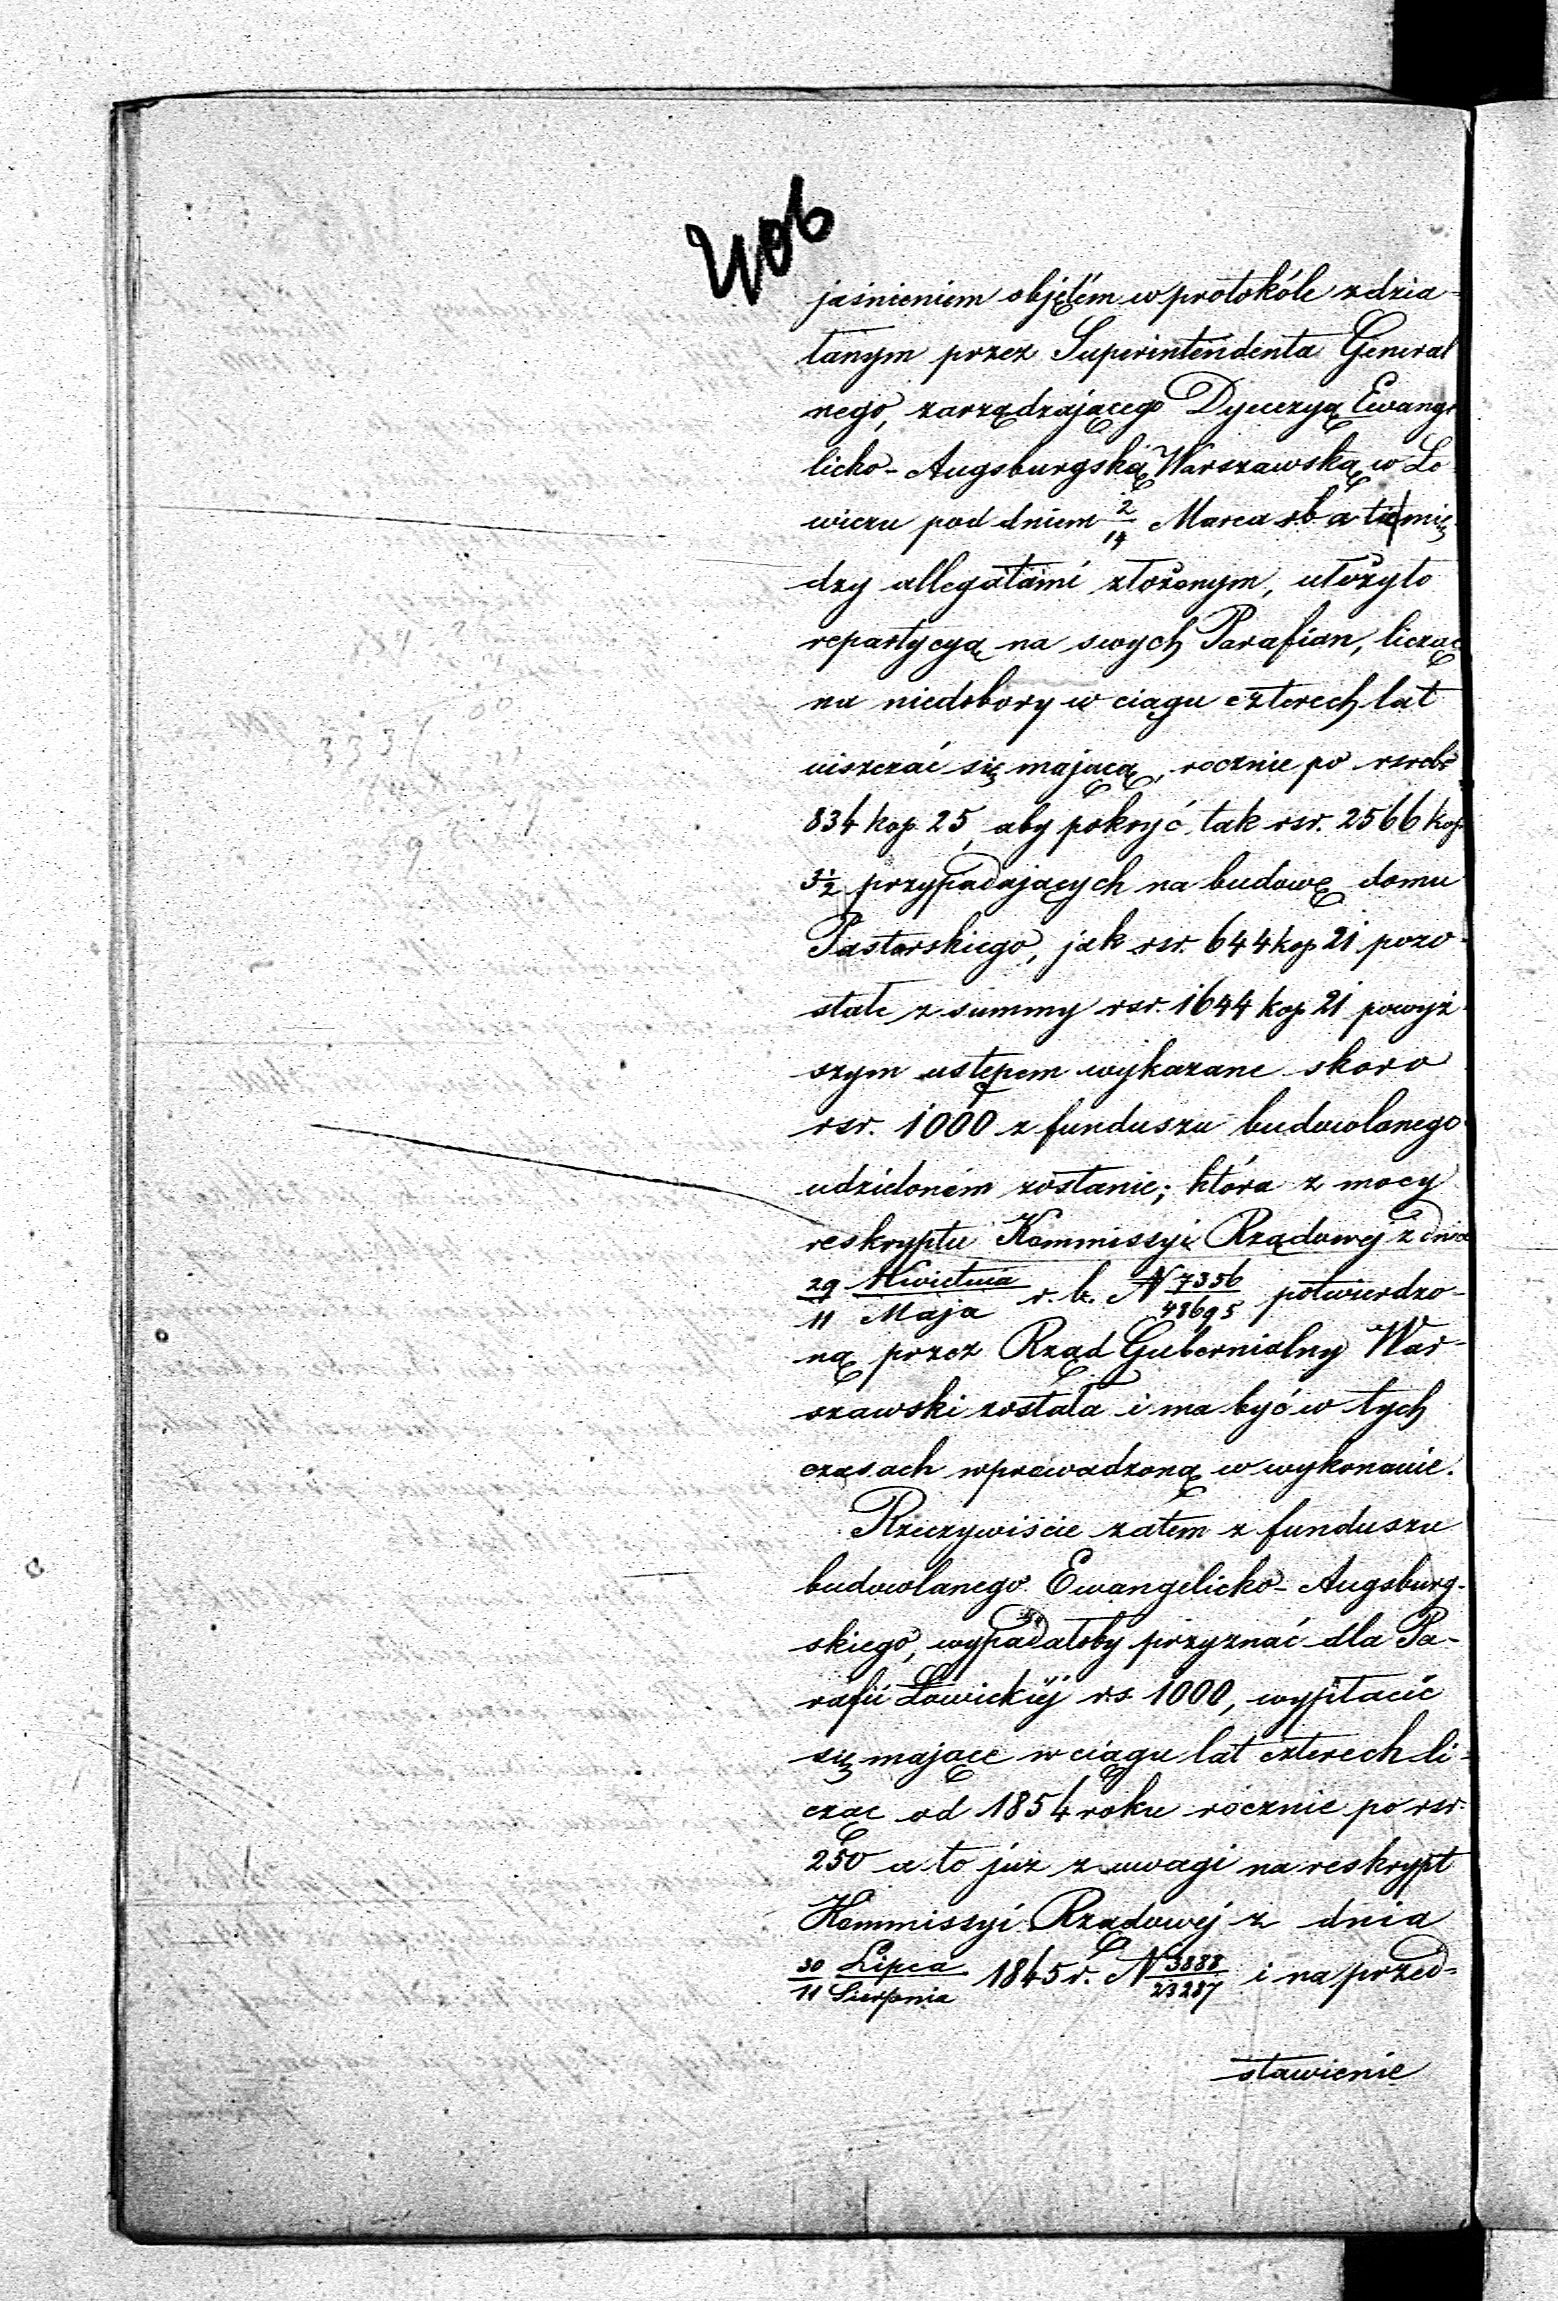 jaśnieniem objętém w protokóle zdzia-
łanym przez Superintendenta General
nego, zarządzającego Dyecezyą Ewange
licko-Augsburgską Warszawską w Ło
wiczu pod dniem 2/14 Marca r.b. a tu mię
dzy allegatami złożonym, ułożyło
repartycyą na swych Parafian, licząc
na niedobory w ciągu czterech lat
uiszczać się mającą, rocznie po rsrebr
834 kop. 25, aby pokryć tak rsr. 2566 kop
3½ przypadających na budowę domu
Pastorskiego, jak rsr. 644 kop 21 pozo-
stałe z summy rsr. 1644 kop 21 powyż-
szym ustępem wykazane skoro
rsr. 1000 z funduszu budowlanego
udzielonem zostanie; która z mocy
reskryptu Kommissyi Rządowej z dnia
29/11 Kwietnia/Maja r. b. N 7356/48695 potwierdzo-
ną przez Rząd Gubernialny War-
szawski została i ma być w tych
czasach wprowadzoną w wykonanie.
Rzeczywiście zatém z funduszu
budowlanego Ewangelicko-Augsburg-
skiego, wypadałoby przyznać dla Pa-
rafii Łowickiéj rs. 1000, wypłacić
się mające w ciągu lat czterech li-
cząc od 1854 roku rocznie po rsr.
250 a to już z uwagi na reskrypt
Kommissyi Rządowej z dnia
30/11 Lipca/Sierpnia 1845 r. N 3888/23287 i na przed-
stawienie